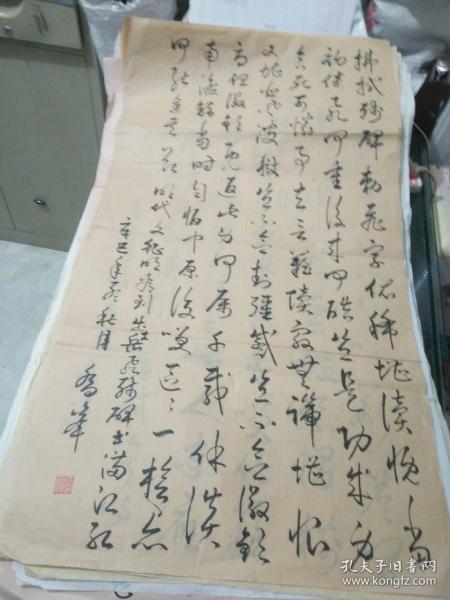 拂拭残碑勅飞字依稀堪读慨当
初倚飞何重后来何酷岂是功成身
合死可怜事去言难赎最无辜堪恨
又堪悲风波狱岂不念封疆蹙岂不念徽钦
辱但徽钦既返此身何属千载休谈
南渡错当时自怕中原复笑区区一桧亦
何能逢其欲 明代文征明看到宋岳飞残碑书满江红
辛巳年秋月 乔峰
孔夫子旧书网
www.kongfz.com